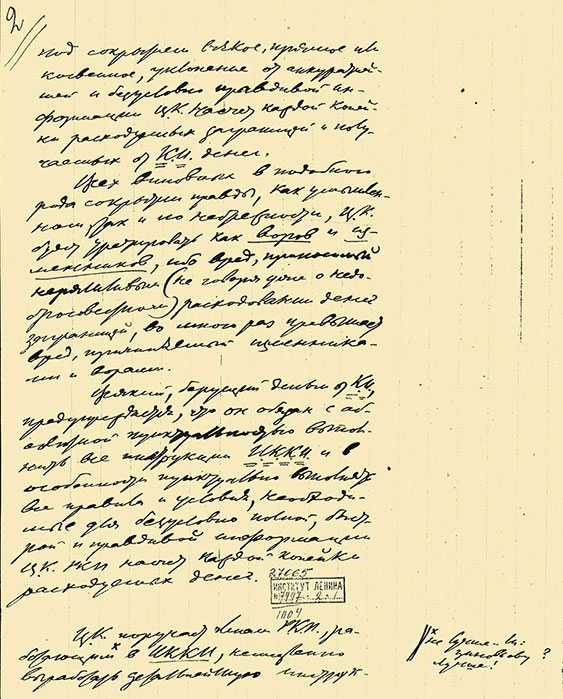 2
под сокрытием всякое, прямое или
косвенное, уклонение от аккуратней-
шей и безусловно правдивой ин-
формации Ц.К. насчет каждой копей-
ки расходуемых заграницей и полу-
чаемых от К.И. денег.
Всех виновных в подобного
рода сокрытии правды, как умышлен-
ном, так и по небрежности, Ц.К.
будет третировать как воров и из-
менников, ибо вред, приносимый
неряшливым (не говоря уже о недо-
бросовестном) расходовании денег
заграницей, во много раз превышает
вред, причиняемый изменника-
ми и ворами.
Всякий, берущий деньги от К.И.,
предупреждается, что он обязан с аб-
солютной пунктуальностью выпол-
нять все инструкции ИККИ и в
особенности пунктуально выполнять
все правила и условия, необходи-
мые для безусловно полной, быст-
рой и правдивой информации
Ц.К. РКП насчет каждой копейки
расходуемых денег.
27665
ИНСТИТУТ ЛЕНИНА
1004
Ц.К. поручает членам РКП, ра-
ботающим в ИККИ, немедленно
выработать детальнейшую инструк-
лучше!
?